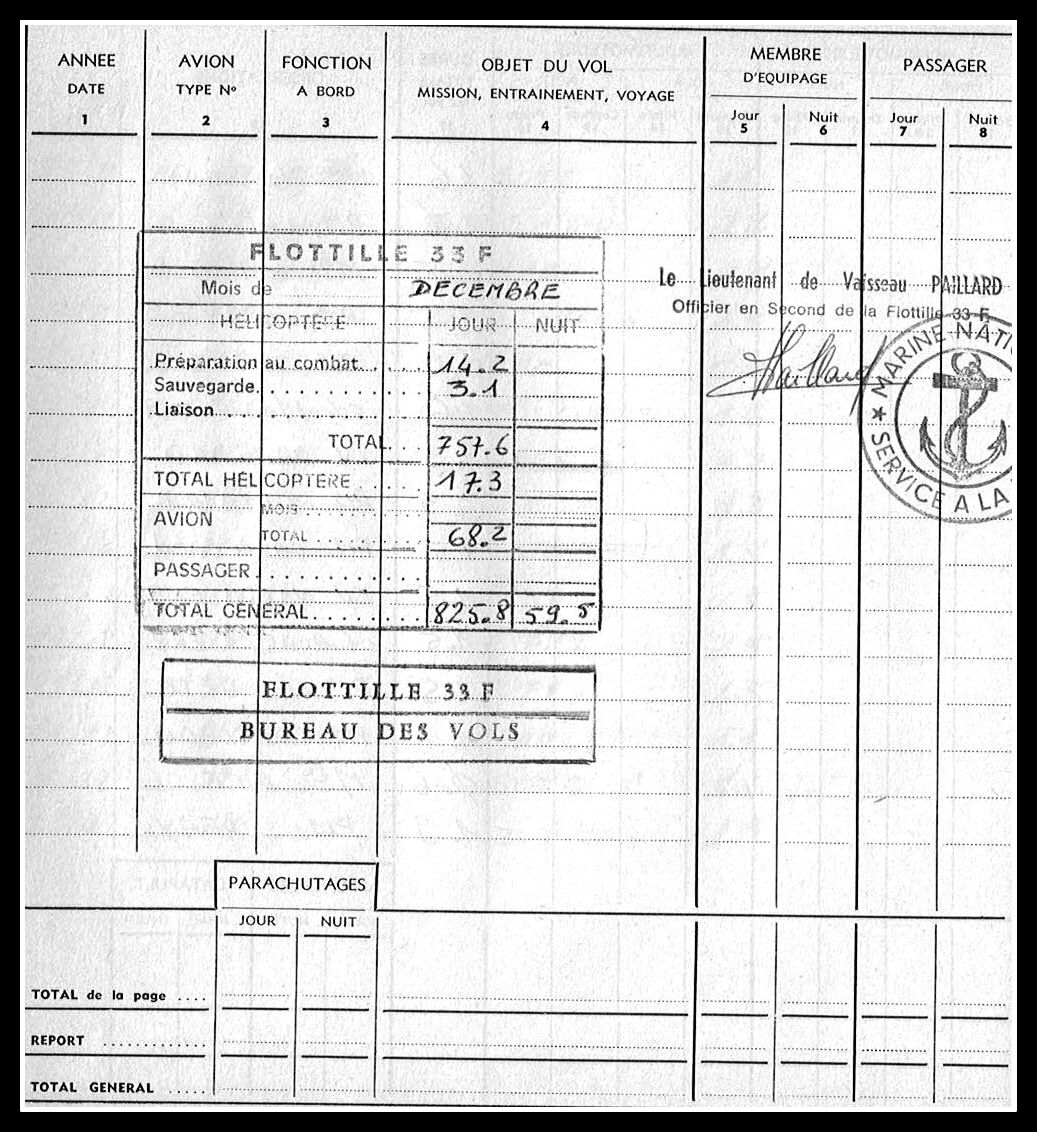 ANNEE AVION FONCTION OBJET DU VOL MEMBRE PASSAGER
DATE TYPE Nº A BORD MISSION, ENTRAINEMENT, VOYAGE D'EQUIPAGE
Jour Nuit Jour Nuit
1 2 3 4 5 6 7 8
FLOTTILLE 33 F
Mois de DECEMBRE
HELICOPTERE JOUR NUIT
Préparation au combat 14.2
Sauvegarde 3.1
Liaison
TOTAL 757.6
TOTAL HELICOPTERE 17.3
AVION MOIS
TOTAL 68.2
PASSAGER
TOTAL GENERAL 825.8 59.5
Le Lieutenant de Vaisseau PAILLARD
Officier en Second de la Flottille 33 F.
Paillard
MARINE NATI
★ SERVICE A LA
FLOTTILLE 33 F
BUREAU DES VOLS
PARACHUTAGES
JOUR NUIT
TOTAL de la page
REPORT
TOTAL GENERAL